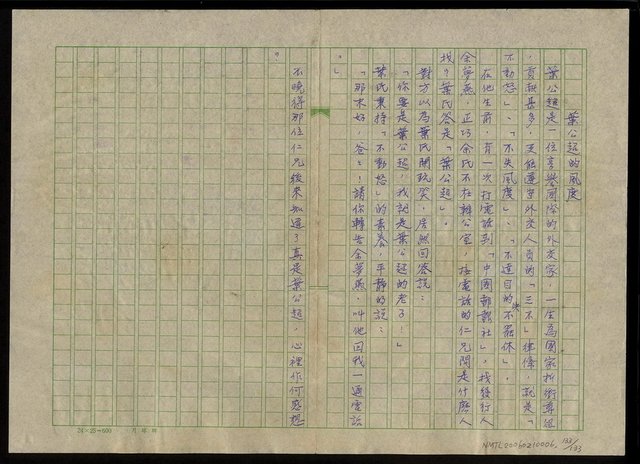 葉公超的風度
葉公超是一位享譽國際的外交家,一生為國家折衝尊俎
,貢獻甚多,更能遵守外交人員的「三不」律條,就是「
不動怒」、「不失風度」、「不達目的不罷休」。
在他生前,有一次打電話到「中國郵報社」,找發行人
余夢燕,正巧余氏不在辦公室,接電話的仁兄問是什麼人
找?葉氏答是「葉公超」。
對方以為葉氏開玩笑,居然回答說:
「你要是葉公超,我就是葉公超的老子!」
葉氏秉持「不動怒」的素養,平靜的說:
「那末好,爸爸!請你轉告余夢燕,叫他回我一通電話
。」
不曉得那位仁兄後來知道了真是葉公超,心裡作何感想
。
24×25=600
NMTL20060210006, 133/133